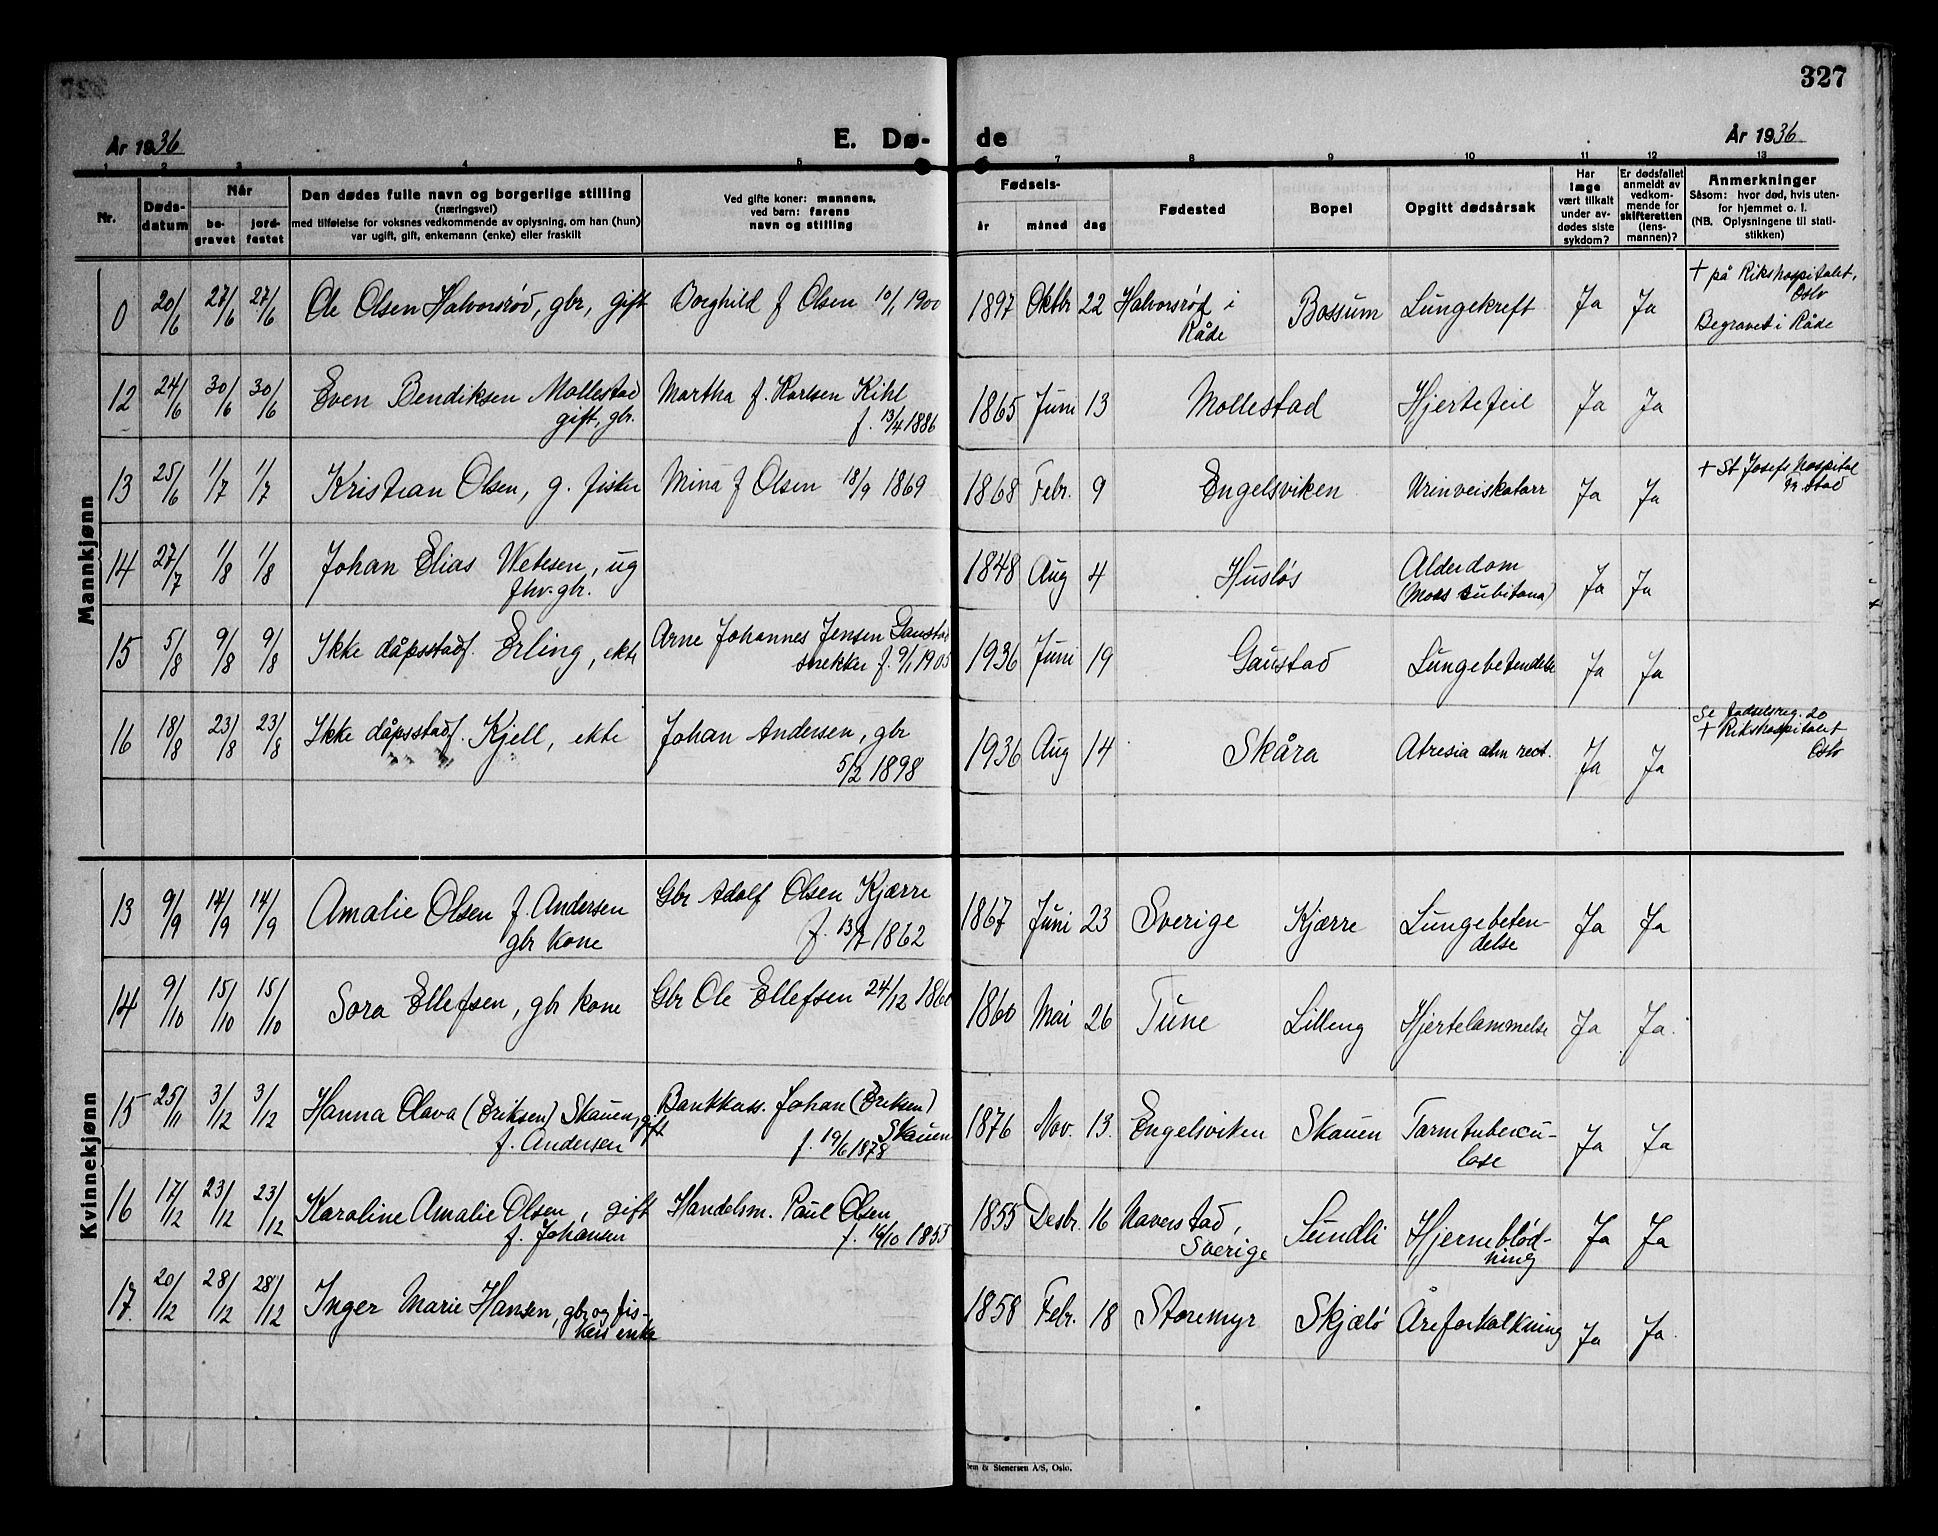 327
År 1936
E. Dø-
de
År 1936
1 2 3 4 5 6 7 8 9 10 11 12 13
Nr.
Døds-
datum
Når
be-
gravet
jord-
festet
Den dødes fulle navn og borgerlige stilling
(næringsvei)
med tilføielse for voksnes vedkommende av oplysning, om han (hun)
var ugift, gift, enkemann (enke) eller fraskilt
Ved gifte koner: mannens,
ved barn: farens
navn og stilling
Fødsels-
år måned dag
Fødested
Bopel
Opgitt dødsårsak
Har
læge
vært tilkalt
under av-
dødes siste
sykdom?
Er dødsfallet
anmeldt av
vedkom-
mende for
skifteretten
(lens-
mannen)?
Anmerkninger
Såsom: hvor død, hvis uten-
for hjemmet o. l.
(NB. Oplysningene til stati-
stikken)
Mannkjønn
0 20/6 27/6 27/6 Ole Olsen Halvorsrød, gbr, gift Borghild f Olsen 10/1 1900 1897 Oktbr 22 Halvorsrød i
Råde
Bossum Lungekreft Ja Ja
+ på Rikshospitalet,
Oslo
Begravet i Råde
12 24/6 30/6 30/6 Even Bendiksen Mollestad
gift, gbr.
Martha f. Karlsen Kihl
f. 13/4 1886
1865 Juni 13 Mollestad Hjertefeil Ja Ja
13 25/6 1/7 1/7 Kristian Olsen, g. fisker Mina f Olsen 18/9 1869 1868 Febr. 9 Engelsviken Urinveiskatarr Ja Ja
+ St Josefs hospital
Fr. stad
14 27/7 1/8 1/8 Johan Elias , ug
fhv. gbr.
1848 Aug 4 Husløs Alderdom
(Mors subitana)
Ja Ja
15 5/8 9/8 9/8 Ikke dåpsstadf. Erling, ekte
Arne Johannes Jensen Gaustad
snekker f. 9/1 1905
1936 Juni 19 Gaustad Lungebetendelse Ja Ja
16 18/8 23/8 23/8 Ikke dåpsstadf. Kjell, ekte
Johan Andersen, gbr
5/2 1898
1936 Aug 14 Skåra Atresia rect. Ja Ja
Se fødselsreg. 20
+ Rikshospitalet
Oslo
Kvinnekjønn
13 9/9 14/9 14/9 Amalie Olsen f. Andersen
gbr kone
Gbr Adolf Olsen Kjærre
f. 13/2 1862
1867 Juni 23 Sverige Kjærre Lungebeten-
delse
Ja Ja
14 9/10 15/10 15/10 Sora Ellefsen, gbr kone Gbr Ole Ellefsen 24/12 1860 1860 Mai 26 Tune Lilleng Hjertelammelse Ja Ja.
15 25/11 3/12 3/12 Hanna Olava (Eriksen) Skauen, gift
f. Andersen
Bankkass. Johan (Eriksen)
Skauen
f. 19/6 1878
1876 Nov. 13. Engelsviken Skauen Tarmtubercu-
lose
Ja Ja
16 17/12 23/12 23/12 Karoline Amalie Olsen, gift
f. Johansen
Handelsm. Paul Olsen
f. 16/10 1855
1855 Desbr. 16 Naverstad,
Sverige
Sundli Hjerneblød-
ning
Ja Ja
17. 20/12 28/12 28/12 Inger Marie Hansen, gbr og fis-
kers enke
1858 Febr. 18 Storemyr Skjælø Åreforkalkning Ja Ja.
& Stenersen A/S, Oslo.